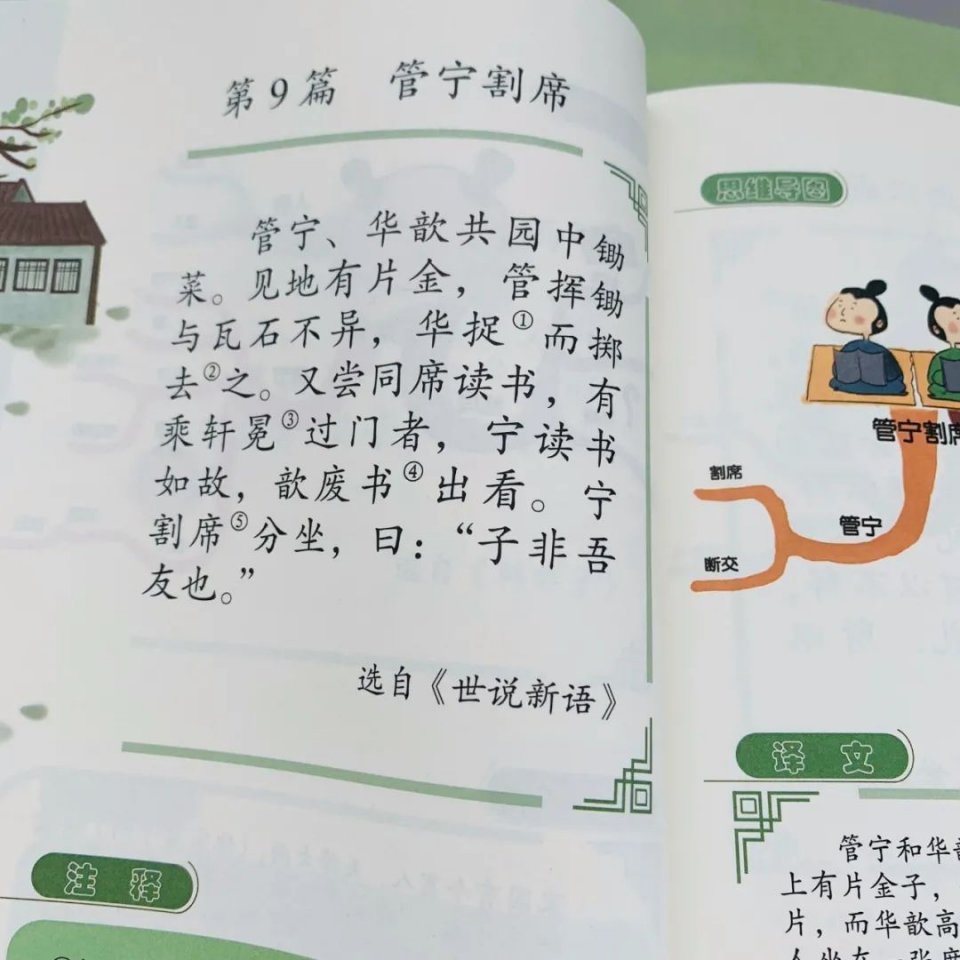 第9篇 管宁割席
管宁、华歆共园中锄
菜。见地有片金，管挥锄
与瓦石不异，华捉①而掷
去②之。又尝同席读书，有
乘轩冕③过门者，宁读书
如故，歆废书④出看。宁
割席⑤分坐，曰：“子非吾
友也。”
选自《世说新语》
注释
思维导图
管宁割席
割席
管宁
断交
译文
管宁和华
上有片金子，
片，而华歆高